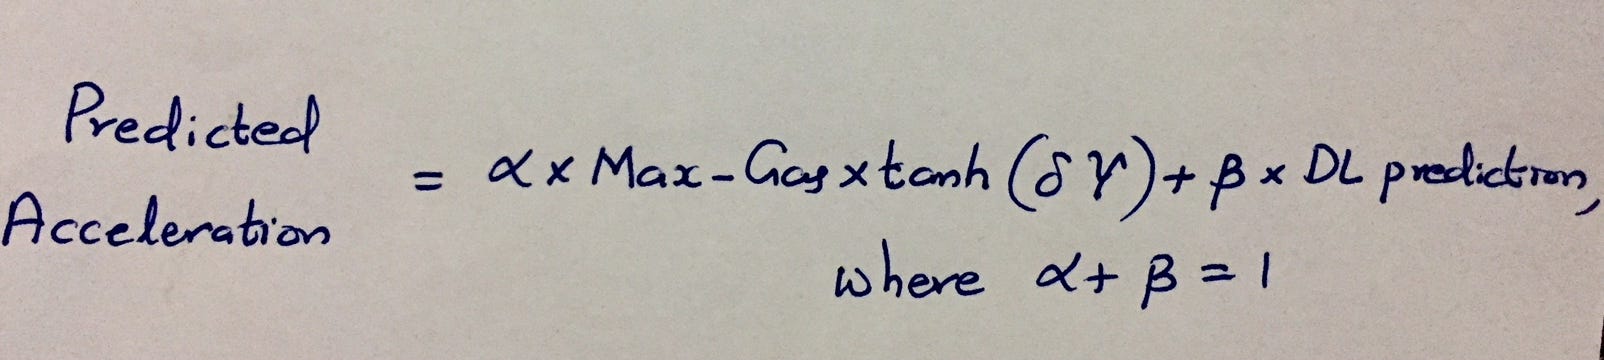 Predicted
Acceleration
= α x Max-Gas x tanh (δγ) + β x DL prediction,
where α + β = 1